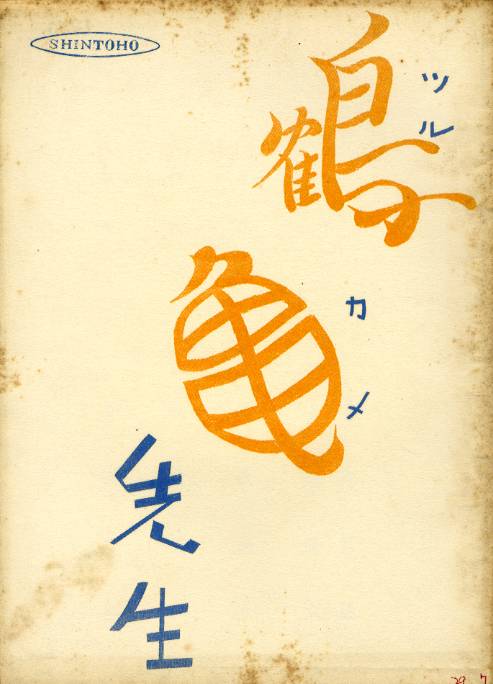 SHINTOHO
鶴
ツル
亀
カメ
先生
29.7